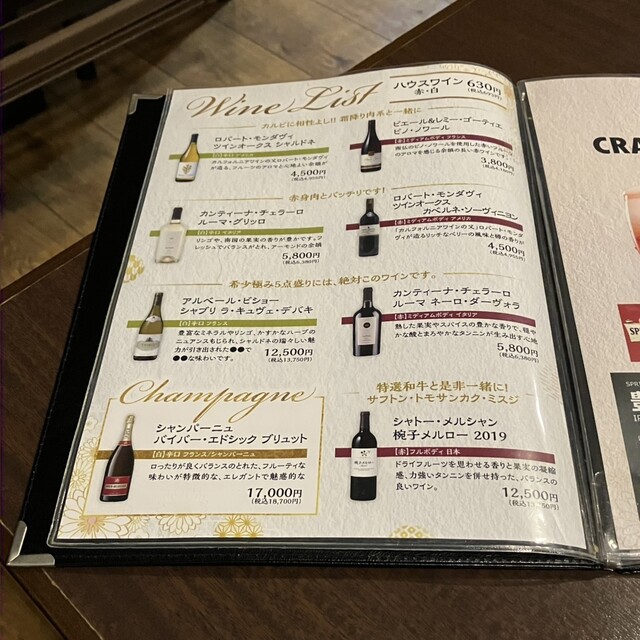 Wine List
ハウスワイン 630円
赤・白
カルビに相性よし!! 霜降り肉系と一緒に
ロバート・モンダヴィ
ツインオークス シャルドネ
4,500円
ピエール&レミー・ゴーティエ
ピノ・ノワール
【赤】ミディアムボディ フランス
3,800円
赤身肉とバッチリです!
カンティーナ・チェラーロ
ルーマ・グリッロ
【白】辛口 イタリア
リンゴや、南国の果実の香りが豊かです。フレ
ッシュでバランスがとれ、アーモンドの余韻
5,800円
(税込6,380円)
ロバート・モンダヴィ
ツインオークス
カベルネ・ソーヴィニヨン
【赤】ミディアムボディ アメリカ
「カルフォルニアワインの父」ロバート・モンダ
ヴィが造るリッチなベリーの風味と樽の香りが
4,500円
(税込4,950円)
希少極み5点盛りには、絶対このワインです。
アルベール・ビショー
シャブリ ラ・キュヴェ・デパキ
【白】辛口 フランス
豊富なミネラルやリンゴ、かすかなハーブの
ニュアンスもじられ、シャルドネの瑞々しい魅
力が引き出された●●で
●●な味わいです。
12,500円
(税込13,750円)
カンティーナ・チェラーロ
ルーマ ネーロ・ダーヴォラ
【赤】ミディアムボディ イタリア
熟した果実やスパイスの豊かな香りで、穏や
かな酸とまろやかなタンニンが生み出す心地
5,800円
(税込6,380円)
Champagne
シャンパーニュ
パイパー・エドシック ブリュット
【白】辛口 フランス/シャンパーニュ
ロったりが良くバランスのとれた、フルーティな
味わいが特徴的な、エレガントで魅惑的な
17,000円
(税込18,700円)
特選和牛と是非一緒に!
サフトン・トモサンカク・ミスジ
シャトー・メルシャン
椀子メルロー 2019
【赤】フルボディ 日本
ドライフルーツを思わせる香りと果実の凝縮
感、力強いタンニンを併せ持った、バランス
の良いワイン。
12,500円
(税込13,750円)
CRA